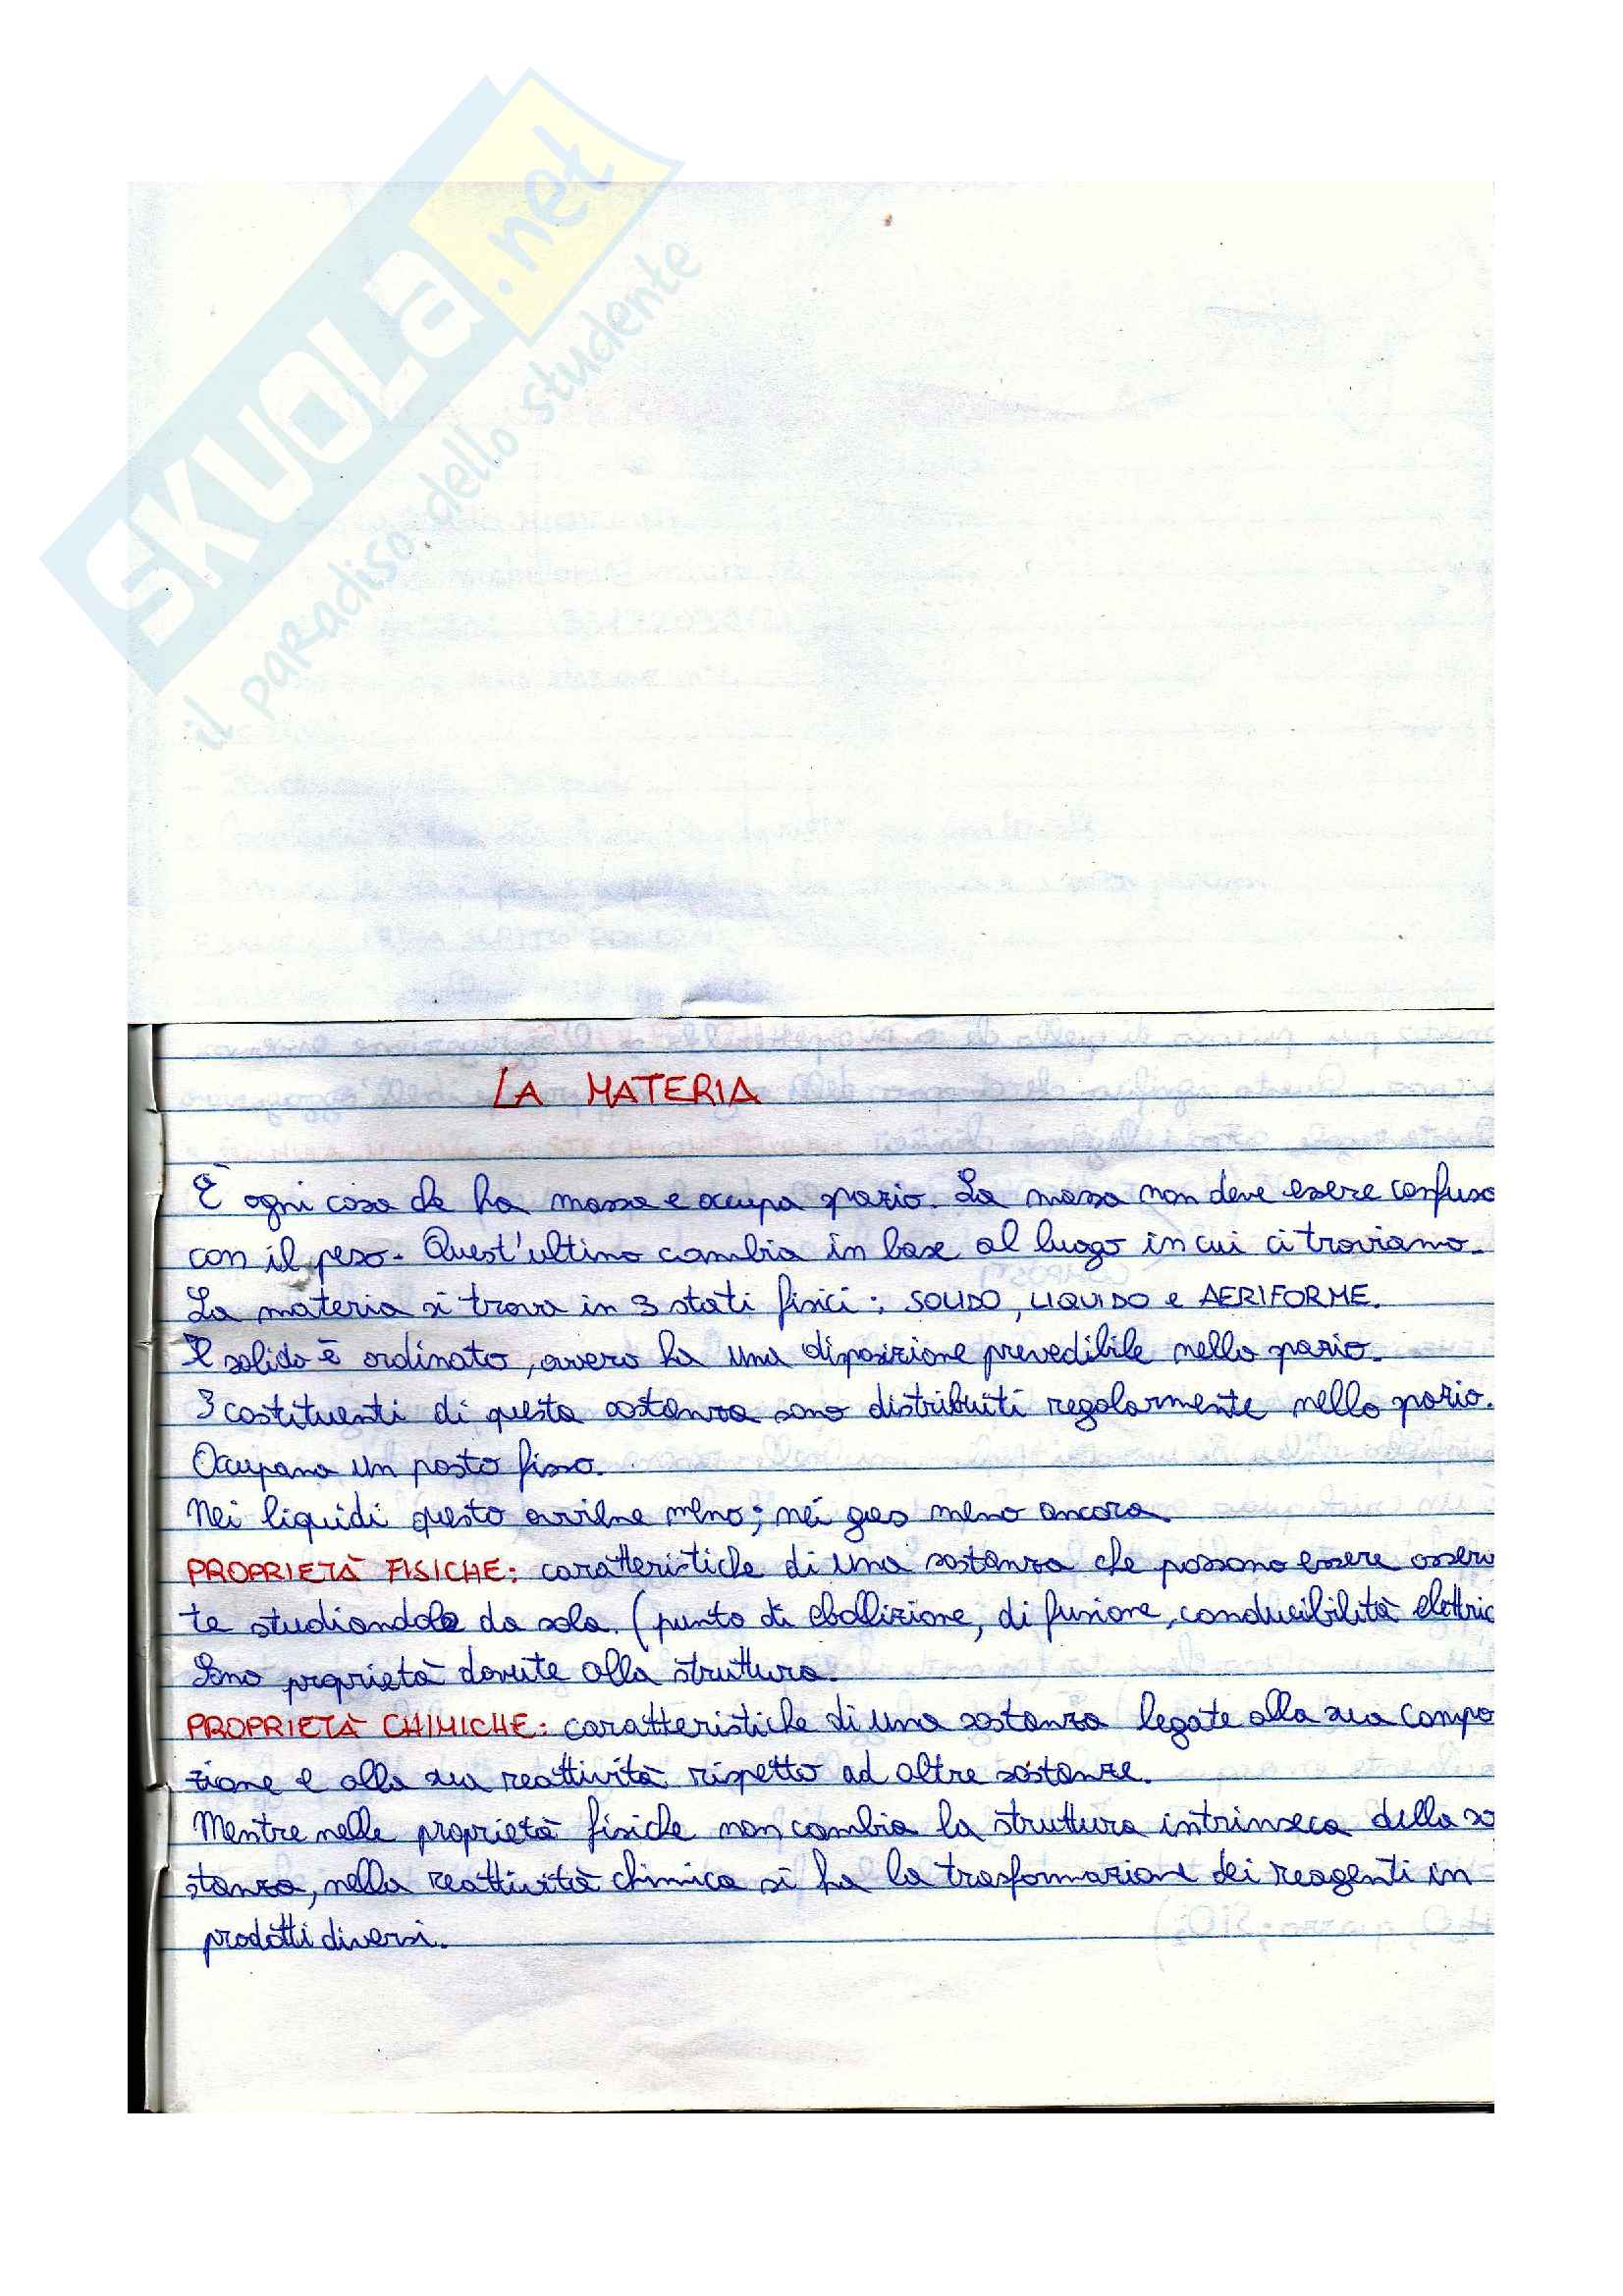 SKUOLA.net
il paradiso dello studente
LA MATERIA
È ogni cosa che ha massa e occupa spazio. La massa non deve essere confusa
con il peso. Quest'ultimo cambia in base al luogo in cui ci troviamo.
La materia si trova in 3 stati fisici: SOLIDO, LIQUIDO e AERIFORME.
Il solido è ordinato, ovvero ha una disposizione prevedibile nello spazio.
I costituenti di questa sostanza sono distribuiti regolarmente nello spazio.
Occupano un posto fisso.
Nei liquidi questo avviene meno; nei gas meno ancora.
PROPRIETÀ FISICHE: caratteristiche di una sostanza che possono essere osserv
te studiandola da sola. (punto di ebollizione, di fusione, conducibilità elettric
Sono proprietà dovute alla struttura.
PROPRIETÀ CHIMICHE: caratteristiche di una sostanza legate alla sua compo
zione e alla sua reattività rispetto ad altre sostanze.
Mentre nelle proprietà fisiche non cambia la struttura intrinseca della so
stanza, nella reattività chimica si ha la trasformazione dei reagenti in
prodotti diversi.